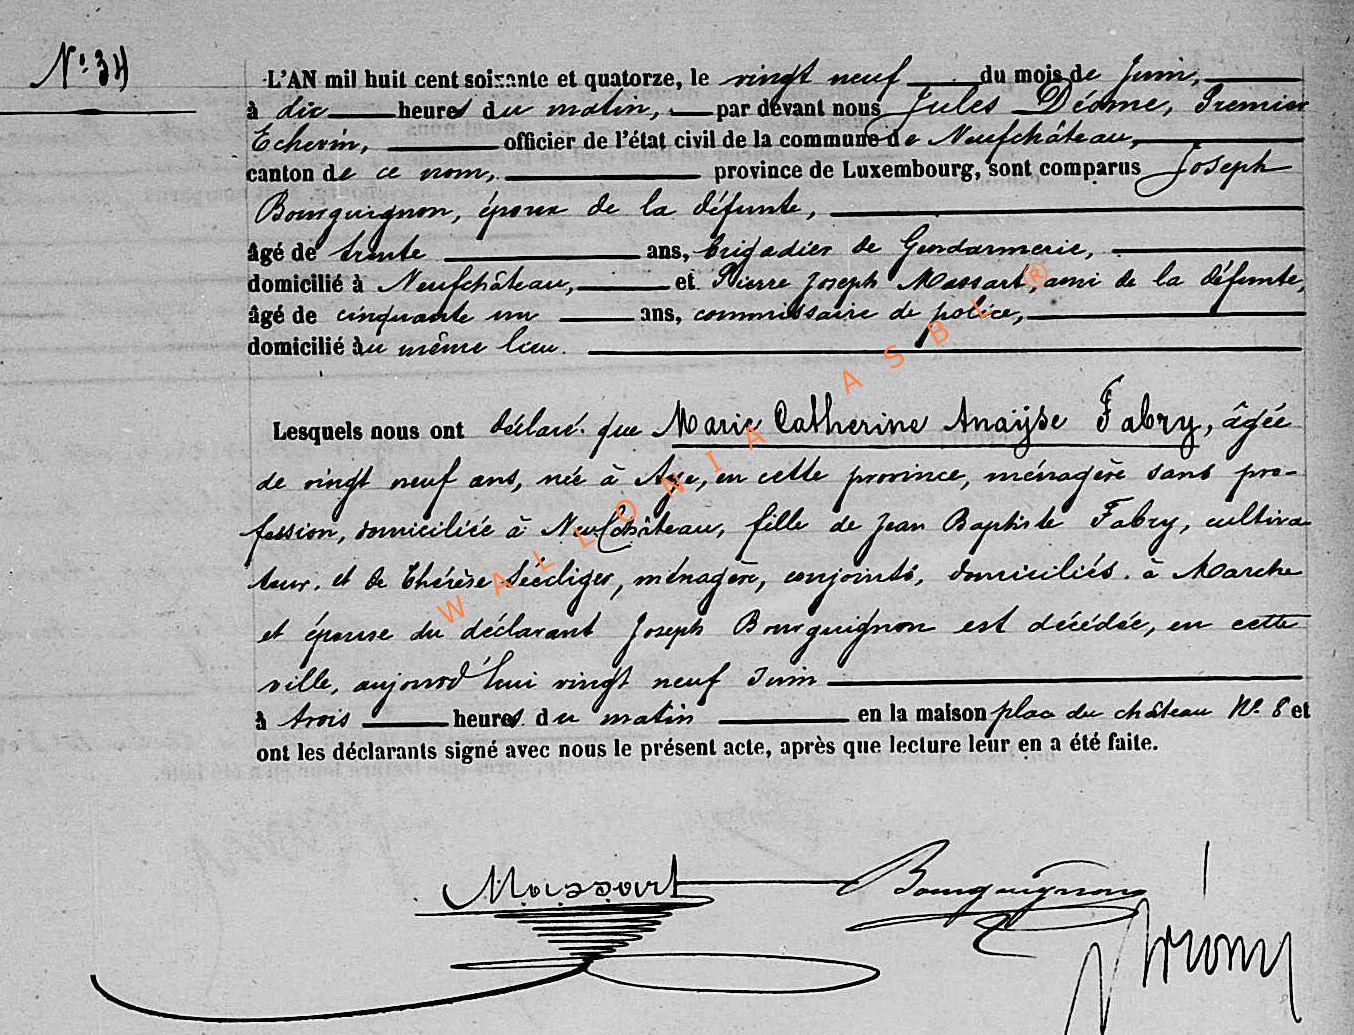 N° 34
L'AN mil huit cent soixante et quatorze, le vingt neuf du mois de Juin,
à dix heures du matin, par devant nous Jules Déome, Premier
Echevin, officier de l'état civil de la commune de Neufchâteau,
canton de ce nom, province de Luxembourg, sont comparus Joseph
Bourguignon, époux de la défunte,
âgé de trente ans, brigadier de Gendarmerie,
domicilié à Neufchâteau, et Pierre Joseph Massart, ami de la défunte,
âgé de cinquante un ans, commissaire de police,
domicilié au même lieu.
Lesquels nous ont déclaré que Marie Catherine Anaÿse Fabry, âgée
de vingt neuf ans, née à Aye, en cette province, ménagère sans pro-
fession, domiciliée à Neufchâteau, fille de Jean Baptiste Fabry, cultiva
teur, et de Thérèse, ménagère, conjoints, domiciliés à Marche
et épouse du déclarant Joseph Bourguignon est décédée, en cette
ville, aujourd'hui vingt neuf Juin
à trois heures du matin en la maison place du château N° 8 et
ont les déclarants signé avec nous le présent acte, après que lecture leur en a été faite.
WALLONIA ASBL ®
Massart Bourguignon